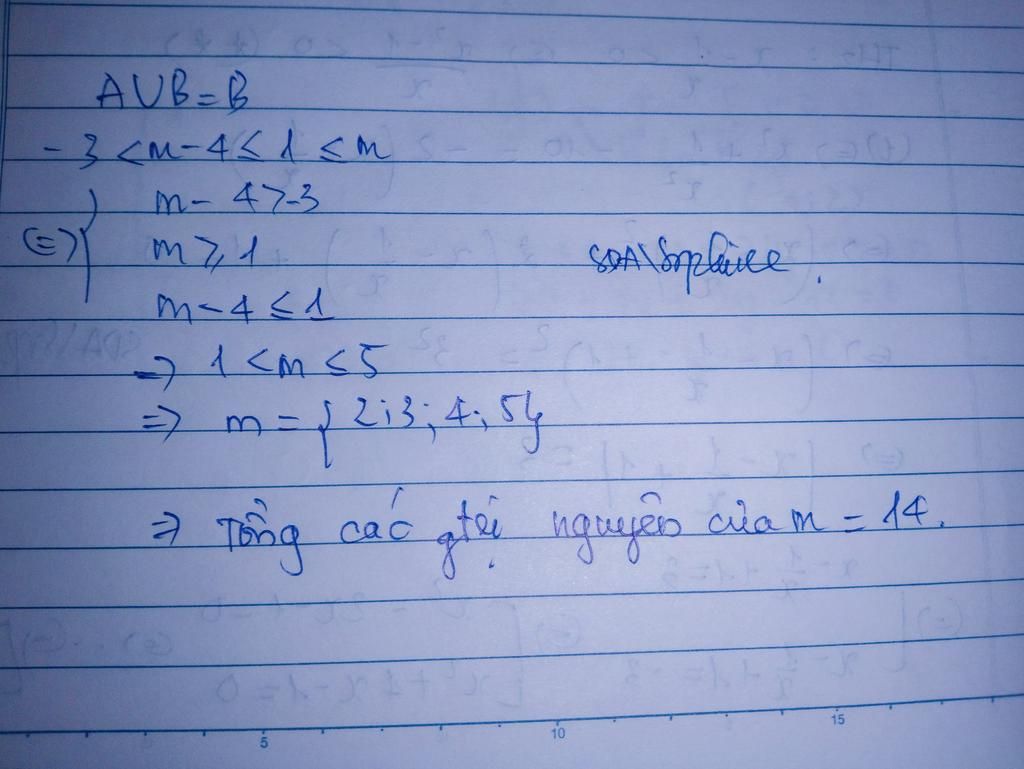 A∪B=B
-3 < m-4 ≤ 1 ≤ m
m-4 > -3
(=) { m ≥ 1
m-4 ≤ 1
=> 1 < m ≤ 5
=> m = { 2; 3; 4; 5}
=> Tổng các gtrị nguyên của m = 14.
5 10 15